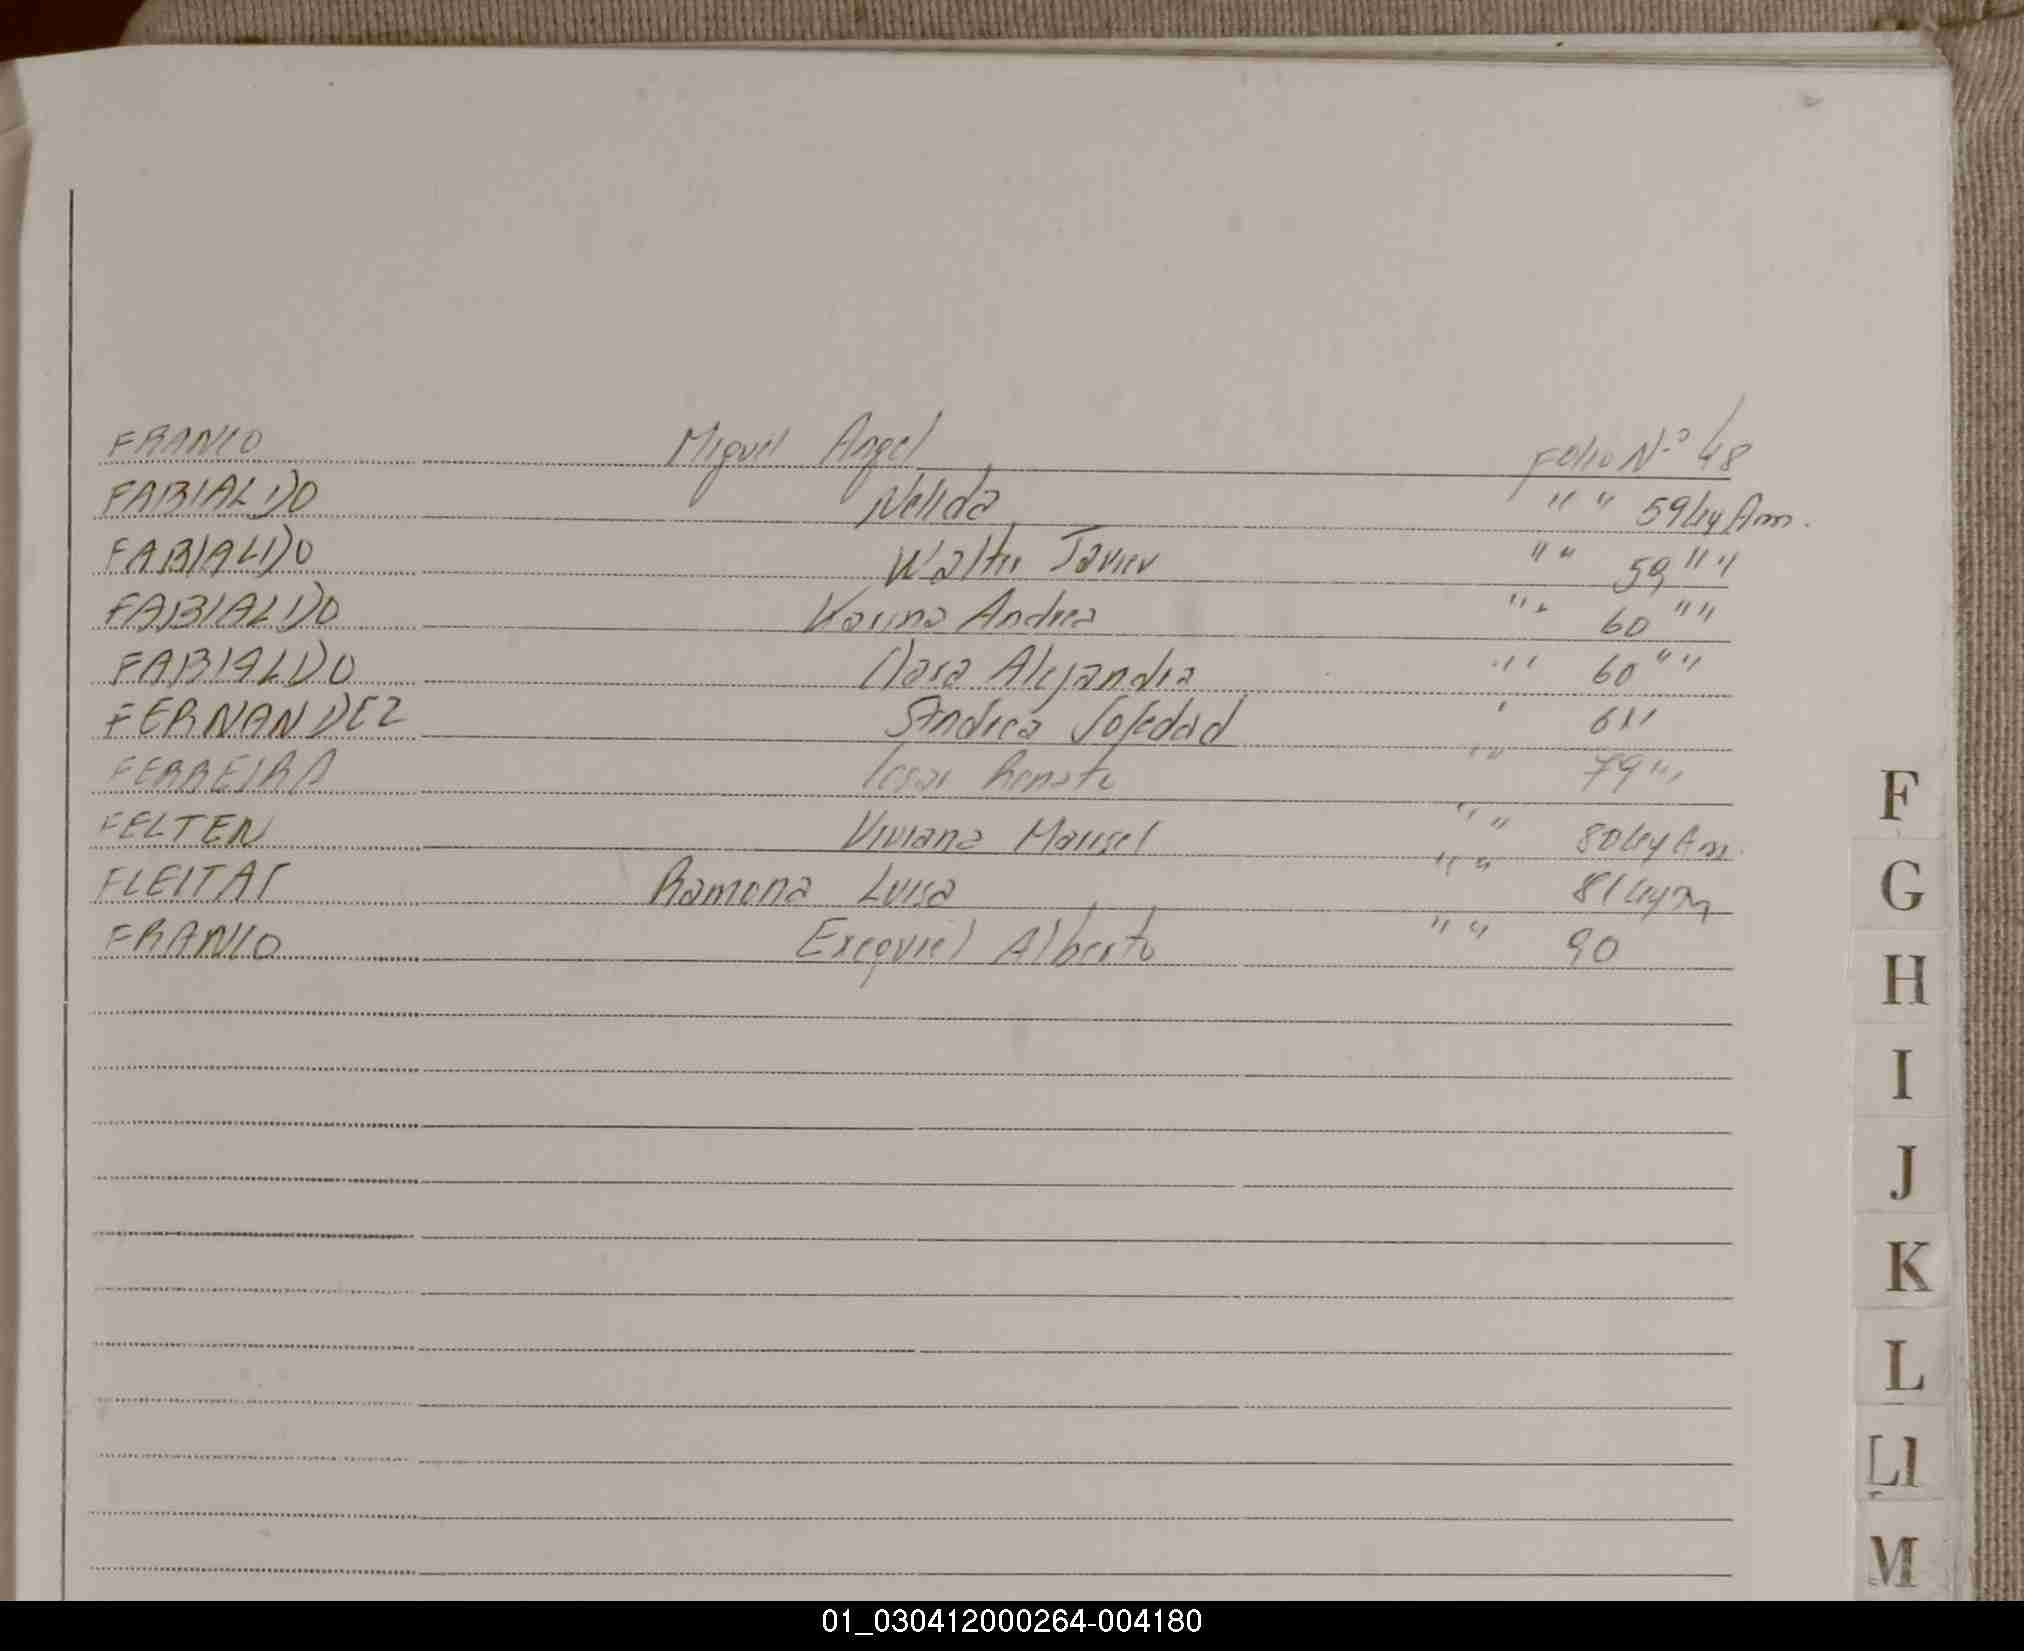 FRANCO Miguel Angel Folio Nº 48
FABIALDO Nelida " " 59 Ley Am.
FABIALDO Walter Javier " " 59 " "
FABIALDO Karina Andrea " " 60 " "
FABIALDO Clara Alejandra " " 60 " "
FERNANDEZ Andrea Soledad " 61 "
FERREIRA Cesar Renato " " 79 " "
FELTEN Viviana Marisel " " 80 Ley Am.
FLEITAS Ramona Luisa " " 81 Ley
FRANCO Exequiel Alberto " " 90
F
G
H
I
J
K
L
Ll
M
01_030412000264-004180